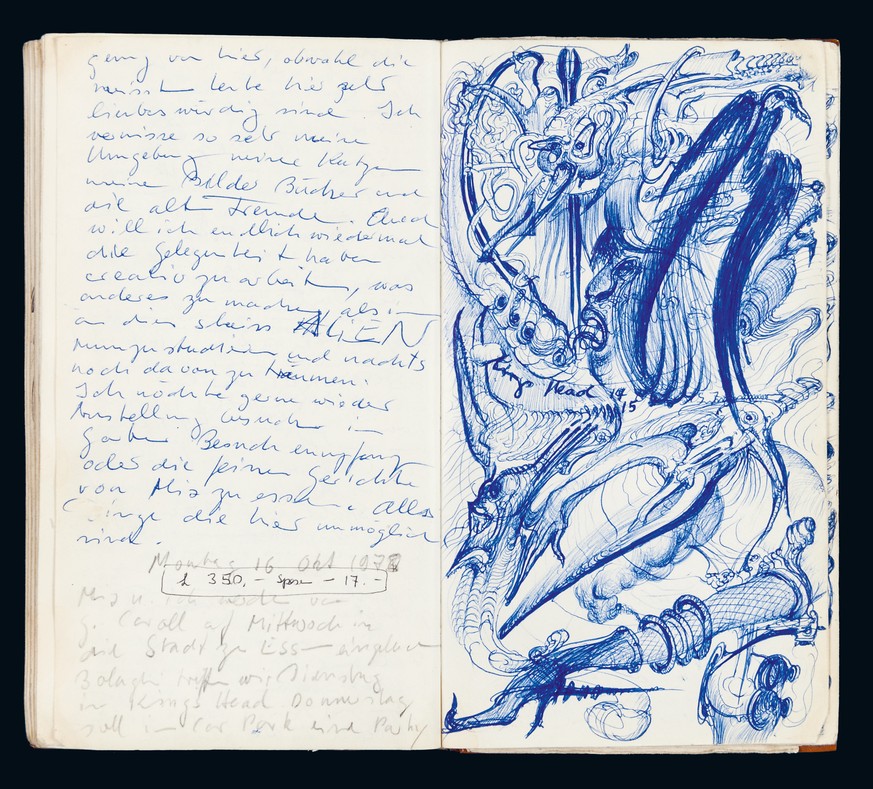 genug von hier, obwohl die
meisten Leute hier sehr
liebenswürdig sind. Ich
vermisse so sehr meine
Umgebung meine Katzen
meine Bilder Bücher und
die alten Freunde. Auch
will ich endlich wiedermal
die Gelegenheit haben
creativ zu arbeiten, was
anderes zu machen als im
an dies scheiss ALIEN
rumzustudieren und nachts
noch davon zu träumen.
Ich möchte gerne wieder
Ausstellung besuchen in
Besuch empfangen
oder die feinen Gerichte
von Mia zu essen. Alles
Dinge die hier unmöglich
sind.
Montag 16 Okt 1978
£ 350.- Spesen - 17.-
Mia u. ich werden von
G. Caroll auf Mittwoch in
die Stadt zu Essen eingeladen
Bolaji treffen wir Dienstag
in Kings Head. Donnerstag
soll im Car Park eine Party
Kings Head